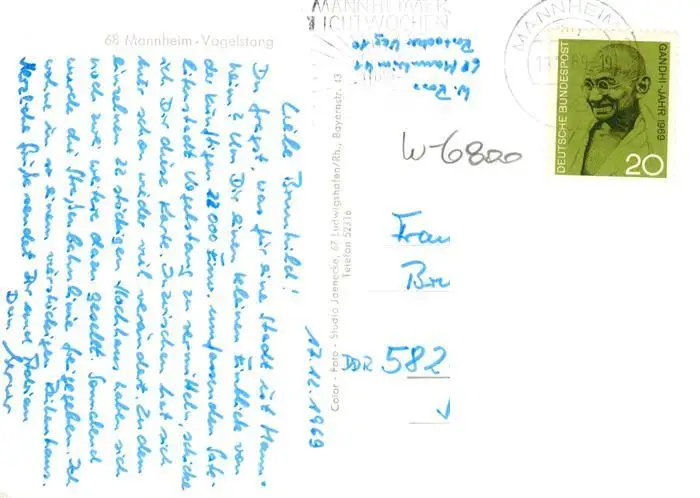 68 Mannheim - Vogelstang
MANNHEIMER
LICHTWOCHEN
MANNHEIM
GANDHI-JAHR 1969
DEUTSCHE BUNDESPOST
20
W.
68 Mannheim
W-6800
Color - Foto - Studio Jaenecke, 67 Ludwigshafen/Rh., Bayernstr. 13
Telefon 52316
17.12.1969
Liebe Brunhild!
Du fragst, was für eine Stadt ist Mann-
heim? Um Dir einen kleinen Einblick von
der künftigen 22000 Einw. umfassenden Sate-
litenstadt Vogelstang zu vermitteln, schicke
ich Dir diese Karte. Inzwischen hat sich
hier schon wieder viel verändert. Zu dem
einzelnen 22 stöckigen Hochhaus haben sich
noch zwei weitere dazu gesellt. Sonnabend
wurde die Straßenbahnlinie freigegeben. Ich
wohne in so einem vierstöckigen Reihenhaus.
Herzliche Grüße sendet Dir und
Dein
Frau
Br
DDR 582